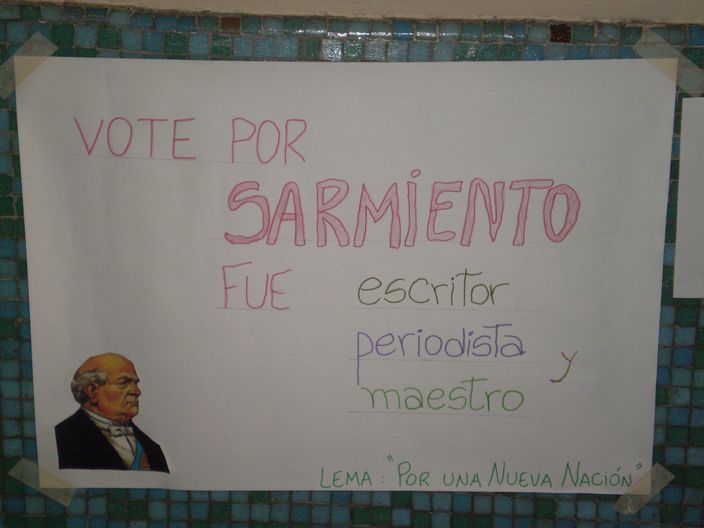 VOTE POR
SARMIENTO
FUE escritor
periodista y
maestro
LEMA: "POR UNA NUEVA NACIÓN"